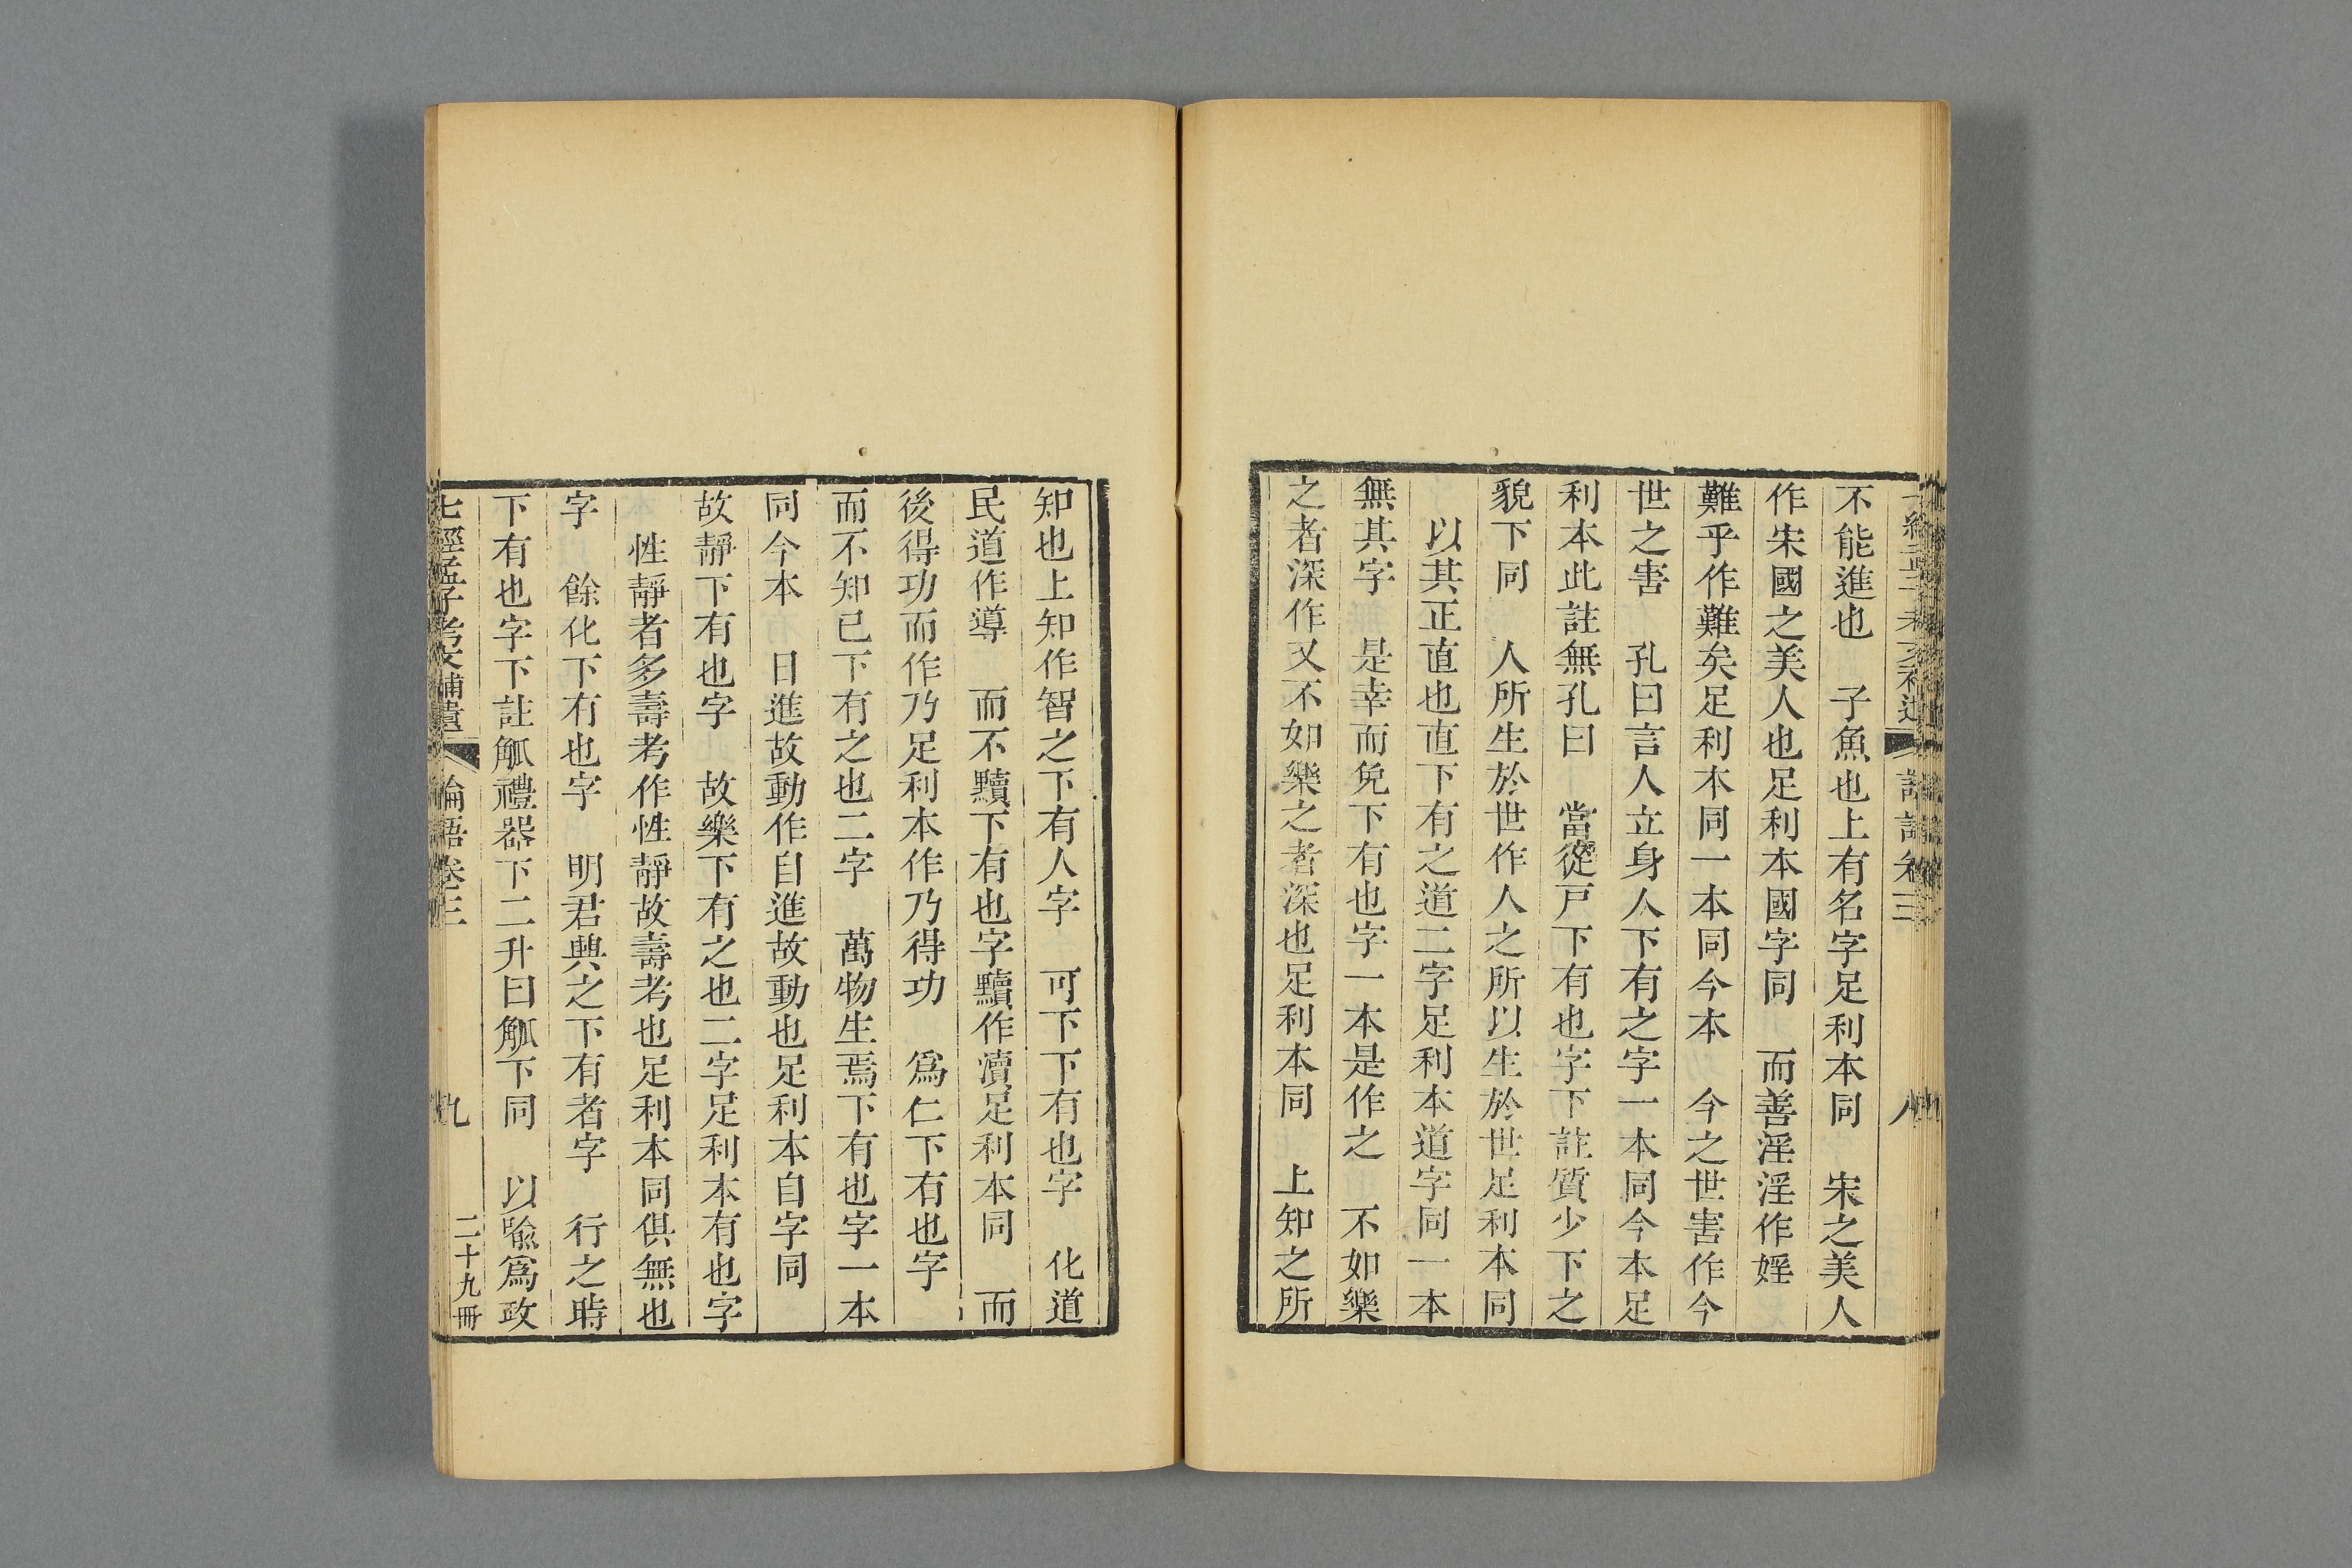 不能進也　子魚也上有名字足利本同　宋之美人
作宋國之美人也足利本國字同　而善淫淫作婬
難乎作難矣足利本同一本同今本　今之世害作今
世之害　孔曰言人立身人下有之字一本同今本足
利本此註無孔曰　當從戸下有也字下註質少下之
貌下同　人所生於世作人之所以生於世足利本同
以其正直也直下有之道二字足利本道字同一本
無其字　是幸而免下有也字一本是作之　不如樂
之者深作又不如樂之者深也足利本同　上知之所
知也上知作智之下有人字　可下下有也字　化道
民道作導　而不黷下有也字黷作瀆足利本同　而
後得功而作乃足利本作乃得功　爲仁下有也字
而不知已下有之也二字　萬物生焉下有也字一本
同今本　日進故動作自進故動也足利本自字同
故靜下有也字　故樂下有之也二字足利本有也字
性靜者多壽考作性靜故壽考也足利本同俱無也
字　餘化下有也字　明君興之下有者字　行之時
下有也字下註觚禮器下二升曰觚下同　以喩爲政
七經孟子考文補遺　論語卷三　九　二十九冊